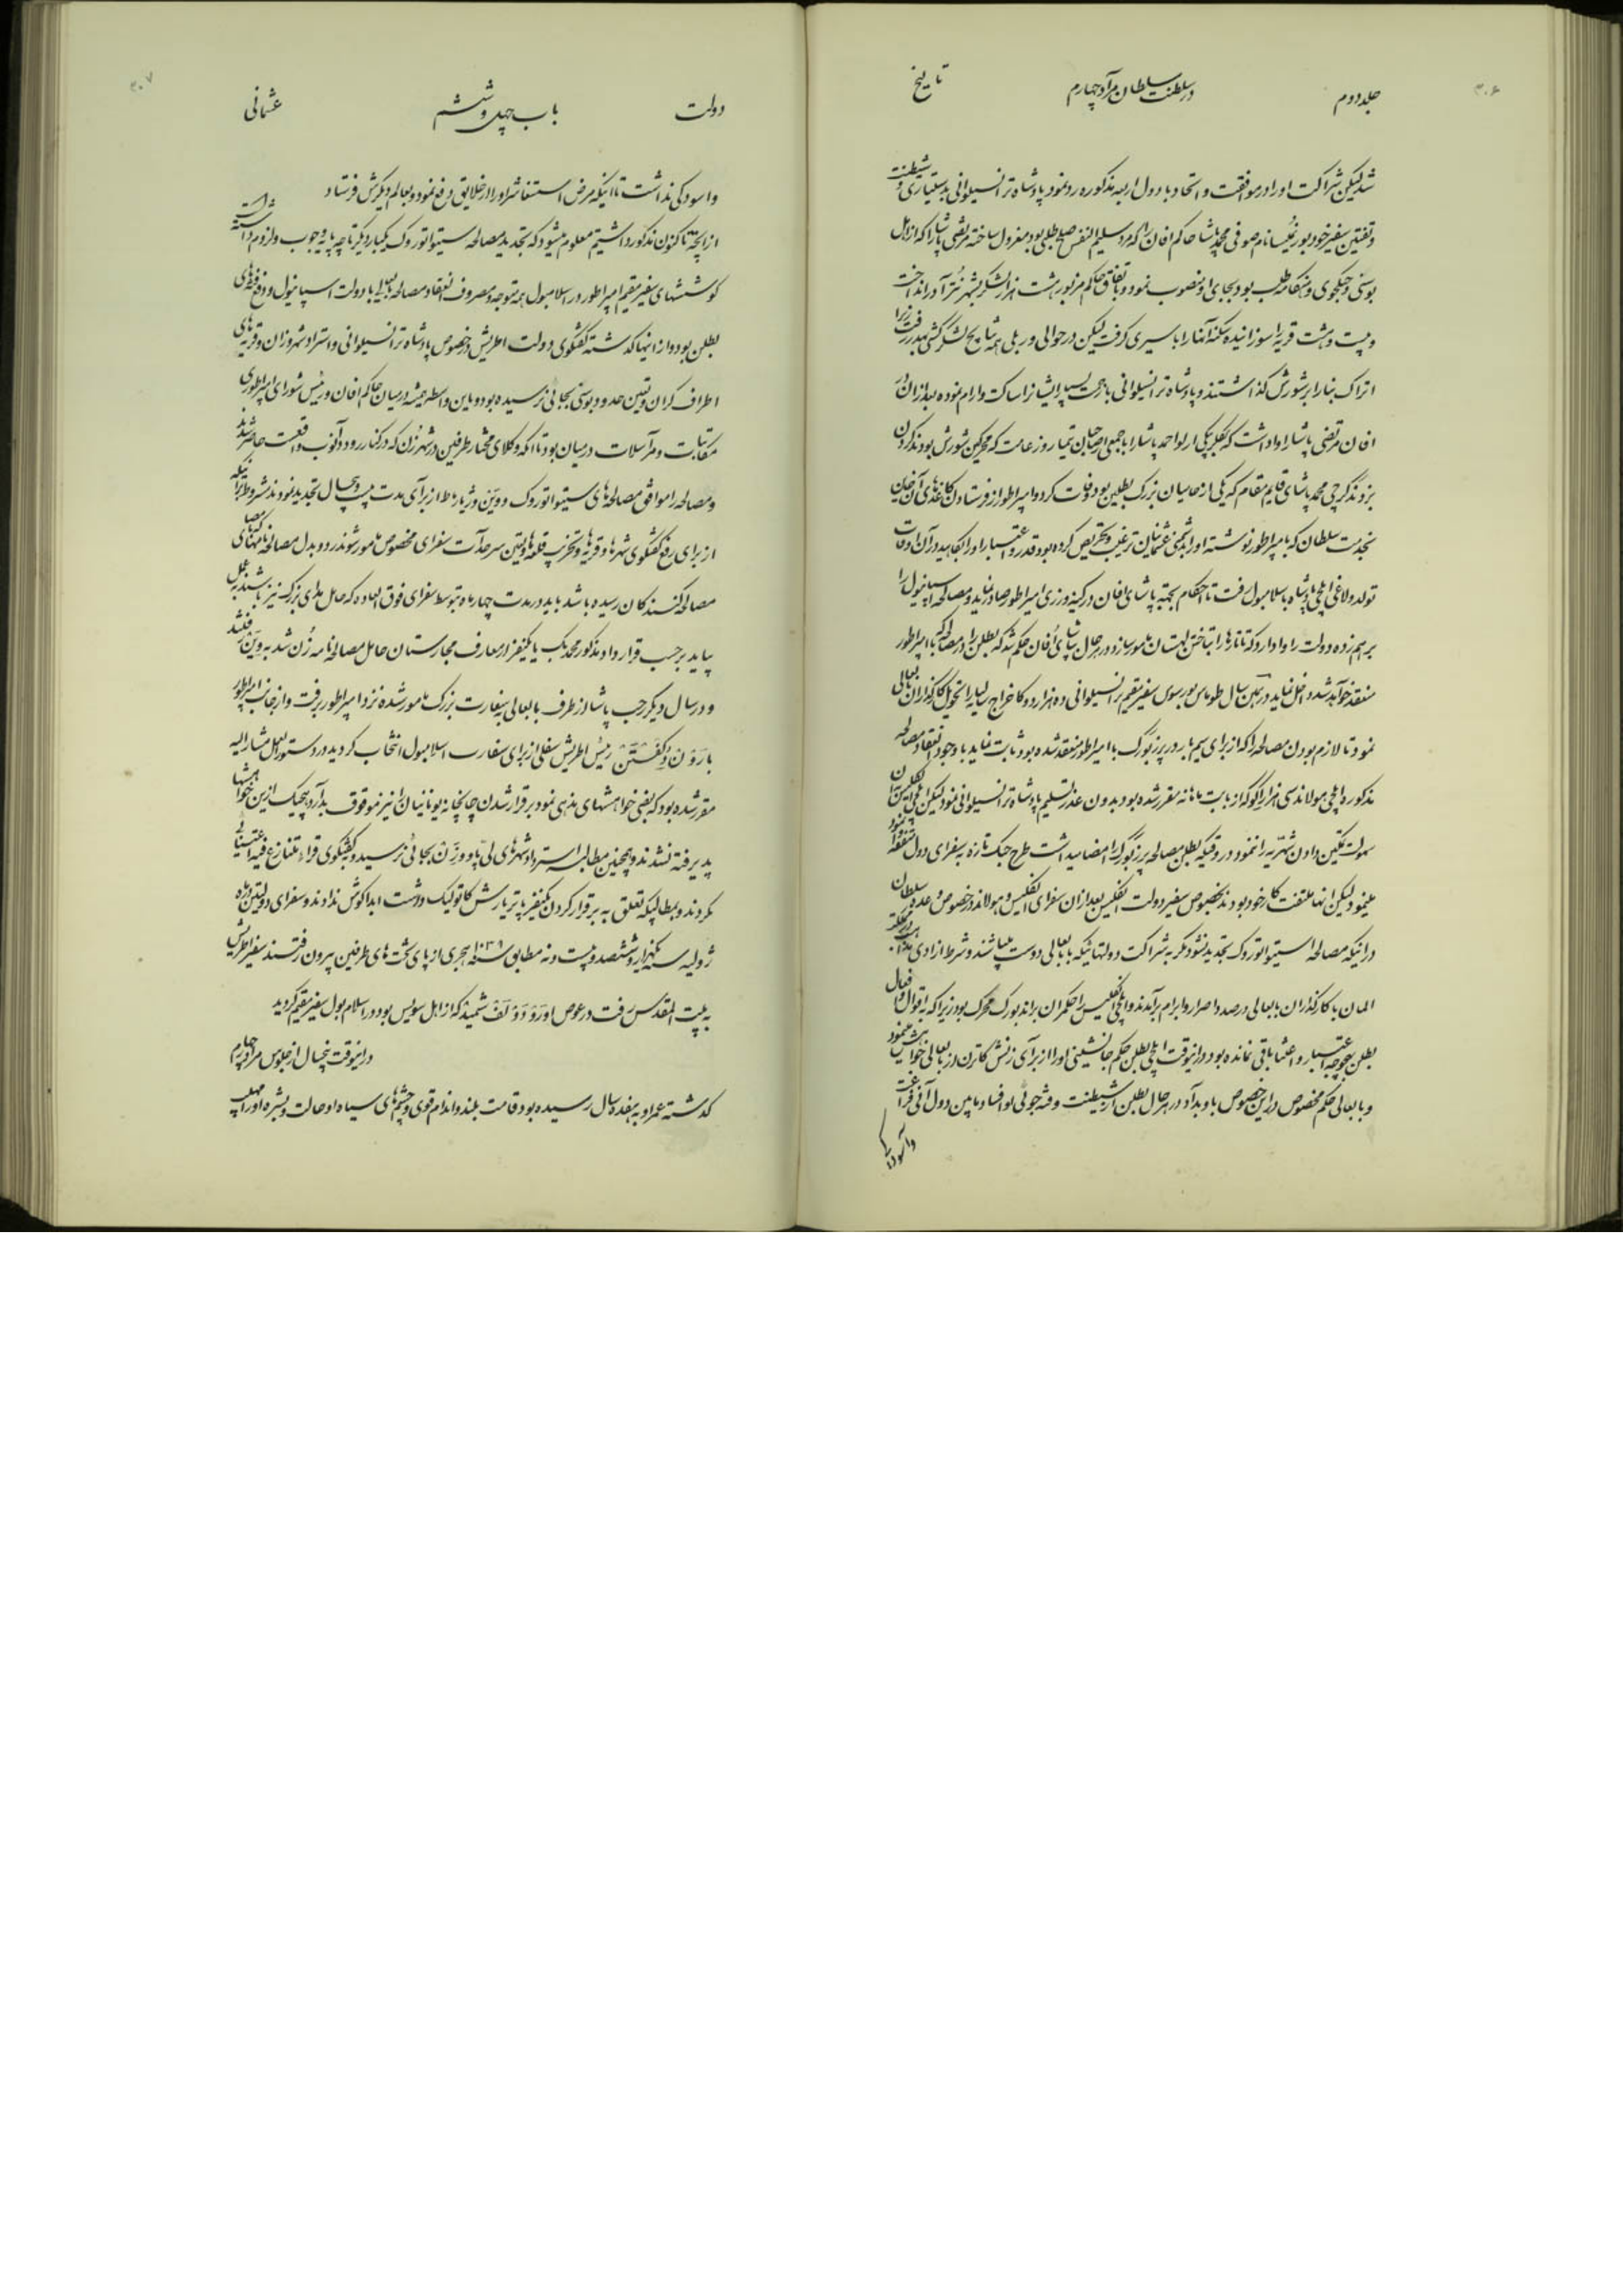 ۳۰۶
جلد دوم
در سلطنت سلطان مراد چهارم
تاریخ
شد لیکن شراکت او را در موافقت و اتحاد با دول اربعه مذکوره رد نمود پادشاه ترانسیلوانی بدستیاری و شیطنت
و تفتین سفیر خود بورنمیسا نام صوفی محمد پاشا حاکم افان را که مرد سلیم النفس صلح طلبی بود معزول ساخته مرتضی پاشا را که از اهل
بوسنی و جنگجوی و هنگامه طلب بود بجای او منصوب نمود و باتفاق حاکم مزبور هشت هزار لشکر بشهر نترا در انداخت
و بیست و هشت قریه را سوزانیده سکنه آنها را باسیری گرفت لیکن در حوالی وربلی همه نتایج لشکر کشی بهدر رفت زیرا
اتراک بنا را بر شورش گذاشتند و پادشاه ترانسیلوانی با زحمت بسیار ایشان را ساکت و آرام نموده بعد از آن در
افان مرتضی پاشا را واداشت که بگلربیکی ارلو احمد پاشا را با جمعی از صاحبان تیمار و زعامت که محرکین شورش بودند گردن
بزدند گرجی محمد پاشای قایم مقام که یکی از حامیان بزرگ بطلین بود وفات کرد و امپراطور از فرستادن کاغذهای آن خاین
بخدمت سلطان که بامپراطور نوشته او را بدشمنی عثمانیان ترغیب و تحریص کرده بود قدر و اعتبار او را بکاهید در آن اوقات
تولدولاغی ایلچی پادشاه باسلامبول رفت تا احکام بجهة پاشای افان در کینه ورزی امپراطور صادر نماید و مصالحه اسپانیول را
بر هم زده دولت را وادارد که تاتارها را بتاختن لهستان مامور سازد در هر حال پاشای افان حکم شد که بطلین را در مصالحه با امپراطور
منعقد خواهد شد داخل نماید در همین سال طوماس بورسوی سفیر مقیم ترانسیلوانی ده هزار دوکا خراج سالیانه را تحویل کارگذاران بابعالی
نمود تا لازم بودن مصالحه را که از برای سیم بار در پرزبورگ با امپراطور منعقد شده بود ثابت نماید با وجود انعقاد مصالحه
مذکوره ایلچی مولاند سی هزار اکو که از بابت ماهانه مقرر شده بود بدون عذر تسلیم پادشاه ترانسیلوانی نمود لیکن ایلچی انگلیس آن
سهولت تمکین دادن شهریه را ننمود در وقتیکه بطلن مصالحه پرزبورگ را امضا میداشت طرح جنگ تازه به سفرای دول متفقه
مینمود لیکن آنها ملتفت کار خود بودند بخصوص سفیر دولت انگلیس بعد از آن سفرای انگلیس و مولاند در خصوص وعده سلطان
در اینکه مصالحه سیتیواتوروک تجدید نشود مگر به شراکت دولتهائیکه با بابعالی دوست میباشند و شرط آزادی مذهب
المان با کارگذاران بابعالی درصدد اصرار و ابرام برآمدند و ایلچی انگلیس را حکمران براندبورگ محرک بود زیرا که به اقوال و افعال
بطلن بهیچوجه اعتبار و اعتنا باقی نمانده بود در اینوقت ایلچی بطلن حکم جانشینی او را از برای زنش کاترین از بابعالی خواهش مینمود
و بابعالی حکم مخصوص در این خصوص باو بداد در هر حال بطلن از شیطنت و فتنه جوئی و افساد مابین دول آنی فراغت
و آسودگی
۳۰۷
دولت
باب چهل و ششم
عثمانی
و آسودگی نداشت تا اینکه مرض استسقا شر او را از خلایق دفع نمود و بعالم دیگرش فرستاد
از آنچه تا کنون مذکور داشتیم معلوم میشود که تجدید مصالحه سیتیواتوروک یکبار دیگر تا چه پایه وجوب و لزوم داشته است
کوششهای سفیر مقیم امپراطور در اسلامبول همه متوجه و مصروف انعقاد مصالحه بابعالی با دولت اسپانیول و دفع فتنه های
بطلن بود و از اینها گذشته گفتگوی دولت اطریش در خصوص پادشاه ترانسیلوانی و استرداد شهر وزان و قریه های
اطراف گران و تعیین حدود بوسنی بجائی نرسیده بود و باین واسطه همیشه در میان حاکم افان و رئیس شورای امپراطوری
مکاتبات و مراسلات در میان بود تا آنکه وکلای مختار طرفین در شهر زن که در کنار رود دانوب واقعست حاضر شدند
و مصالحه را موافق مصالحه های سیتیواتوروک و وین و ژیارماط از برای مدت بیست و پنج سال تجدید نمودند بشرط آنکه
از برای رفع گفتگوی شهرها و قریه ها و تخریب قلعه ها و تعیین سرحدات سفرای مخصوص مامور شوند و رد و بدل مصالحه نامها که بامضای
مصالحه کنندگان رسیده باشد باید در مدت چهار ماه بتوسط سفرای فوق العاده که حامل هدایای بزرگ نیز باشند بعمل
بیاید بر حسب قرارداد مذکور محمد بک با یکنفر از معارف مجارستان حامل مصالحه نامه زن شد به وین رفتند
و در سال دیگر رجب پاشا از طرف بابعالی به سفارت بزرگ مامور شده نزد امپراطور برفت و از جانب امپراطور
بارون دکفستن رئیس اطریش سفلی از برای سفارت اسلامبول انتخاب گردید و در دستورالعمل مشارالیه
مقرر شده بود که بعضی خواهشهای مذهبی نمود برقرار شدن چاپخانه یونانیان را نیز موقوف بدارد هیچیک از این خواهشها
پذیرفته نشدند و همچنین مطالبه استرداد شهرهای لیپا و وزن بجائی نرسید و به گفتگوی قراء متنازع فیه اعتنائی
نکردند و بمطالبیکه تعلق به برقرار کردن یکنفر پاتریارش کاتولیک داشت ابدا گوش ندادند و سفرای دولتین در ماه
ژولیه سنه یکهزار و ششصد و بیست و نه مطابق سنه ۱۰۳۹ هجری از پای تخت های طرفین بیرون رفتند سفیر اطریش
به بیت المقدس رفت در عوض او رودولف شمید که از اهل سویس بود در اسلامبول سفیر مقیم گردید
در اینوقت پنجسال از جلوس مراد چهارم
گذشته عمر او به هفده سال رسیده بود قامت بلند و اندام قوی و چشمهای سیاه او حالت و بشره او را مهیب